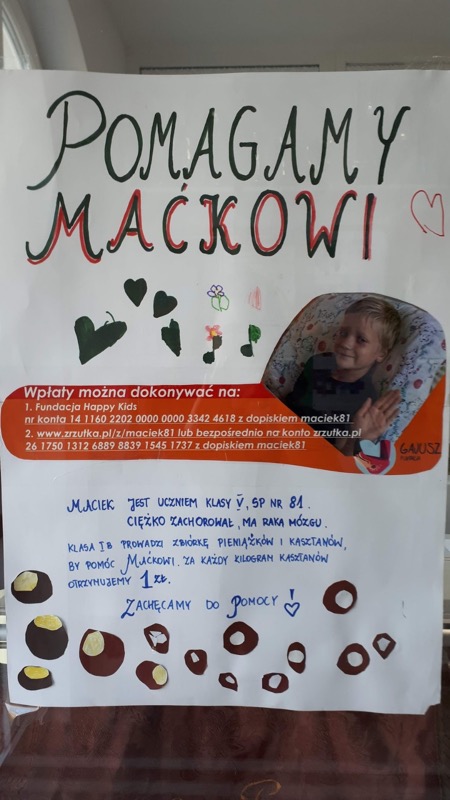 POMAGAMY
MAĆKOWI
Wpłaty można dokonywać na:
1. Fundacja Happy Kids
nr konta 14 1160 2202 0000 0000 3342 4618 z dopiskiem maciek81
2. www.zrzutka.pl/z/maciek81 lub bezpośrednio na konto zrzutka.pl
26 1750 1312 6889 8839 1545 1737 z dopiskiem maciek81
GAJUSZ
FUNDACJA
MACIEK JEST UCZNIEM KLASY V, SP NR 81.
CIĘŻKO ZACHOROWAŁ, MA RAKA MÓZGU.
KLASA I B PROWADZI ZBIÓRKĘ PIENIĄŻKÓW I KASZTANÓW,
BY POMÓC MAĆKOWI. ZA KAŻDY KILOGRAM KASZTANÓW
OTRZYMUJEMY 1 ZŁ.
ZACHĘCAMY DO POMOCY!